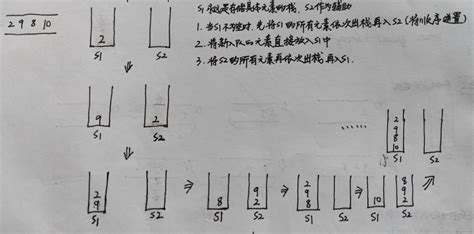 2 9 8 10
S1永远是存储具体元素的栈, S2作为辅助
1. 当S1不空时, 先将S1的所有元素依次出栈再入S2 (将顺序逆置)
2. 将新入队的元素直接放入S1中
3. 将S2的所有元素再依次出栈再入S1.
2
S1 S2
9 2
S1 S2
2
9
S1 S2
8
S1
9
2
S2
2
9
8
S1 S2
10
S1
8
9
2
S2
......
2
9
8
10
S1 S2